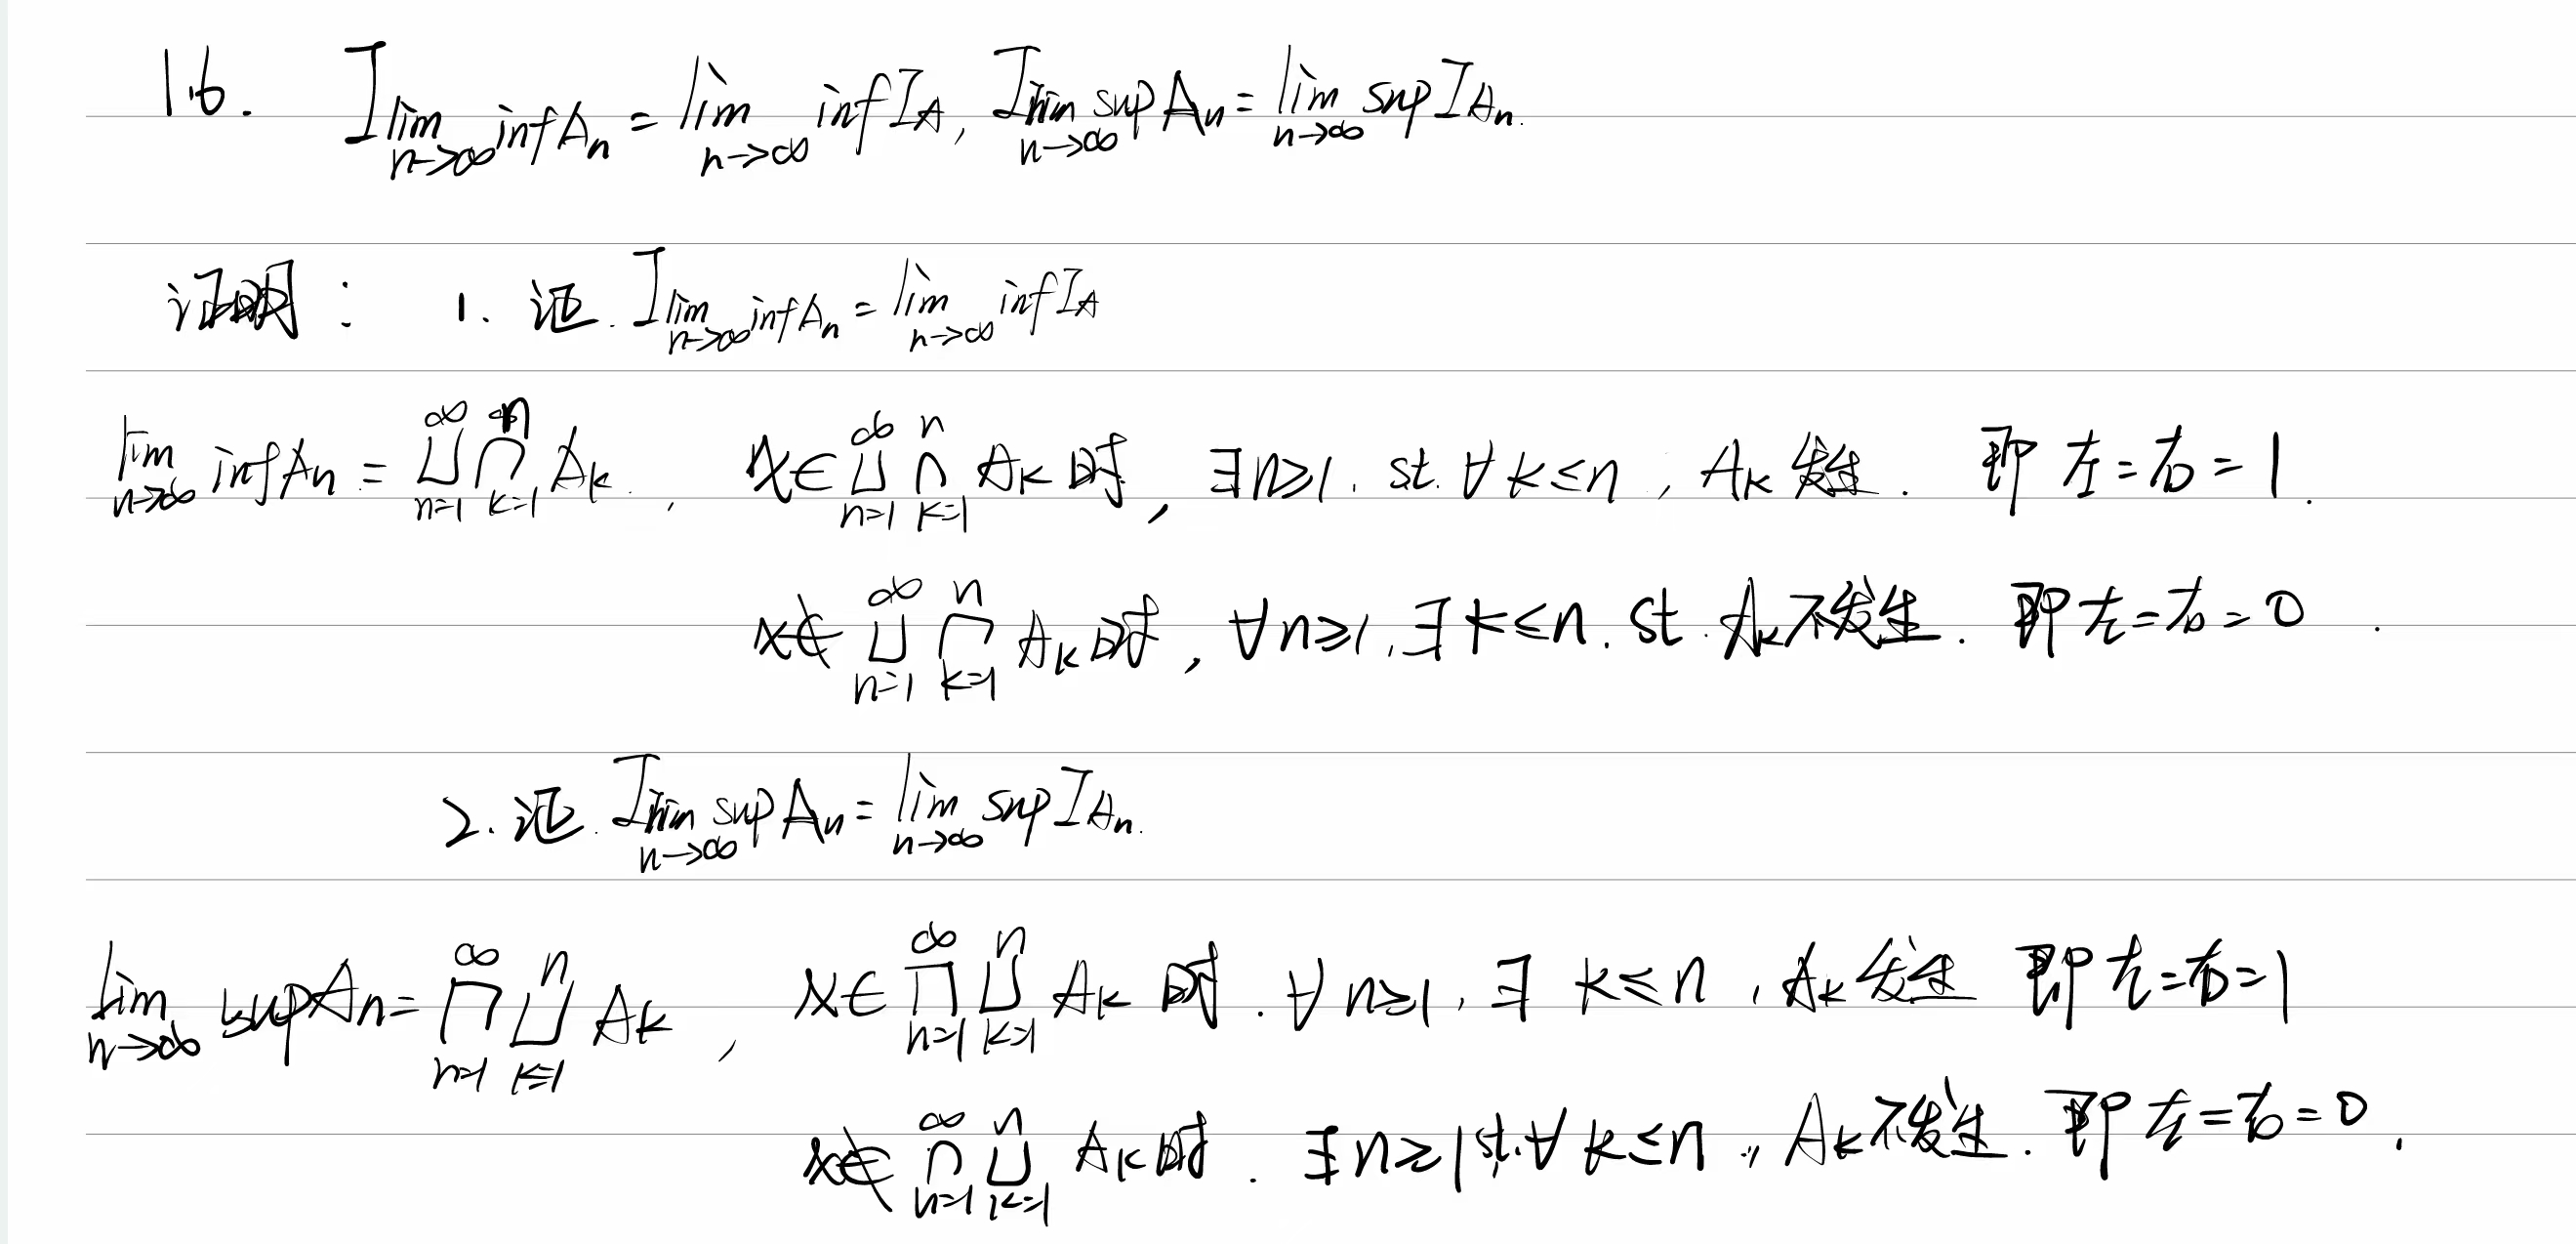 1.6. I_{lim_{n→∞} inf A_n} = lim_{n→∞} inf I_A, I_{lim_{n→∞} sup A_n} = lim_{n→∞} sup I_{A_n}.
证明: 1. 证. I_{lim_{n→∞} inf A_n} = lim_{n→∞} inf I_A
lim_{n→∞} inf A_n = ∪_{n=1}^{∞} ∩_{k=1}^{n} A_k, x∈ ∪_{n=1}^{∞} ∩_{k=1}^{n} A_k 时, ∃n≥1. st. ∀k≤n, A_k 发生. 即 左=右=1.
x∉ ∪_{n=1}^{∞} ∩_{k=1}^{n} A_k 时, ∀n≥1, ∃k≤n. st. A_k 不发生. 即 左=右=0.
2. 证. I_{lim_{n→∞} sup A_n} = lim_{n→∞} sup I_{A_n}.
lim_{n→∞} sup A_n = ∩_{n=1}^{∞} ∪_{k=1}^{n} A_k, x∈ ∩_{n=1}^{∞} ∪_{k=1}^{n} A_k 时. ∀n≥1, ∃ k≤n, A_k 发生 即 左=右=1
x∉ ∩_{n=1}^{∞} ∪_{k=1}^{n} A_k 时. ∃n≥1 st. ∀k≤n, A_k 不发生. 即 左=右=0.